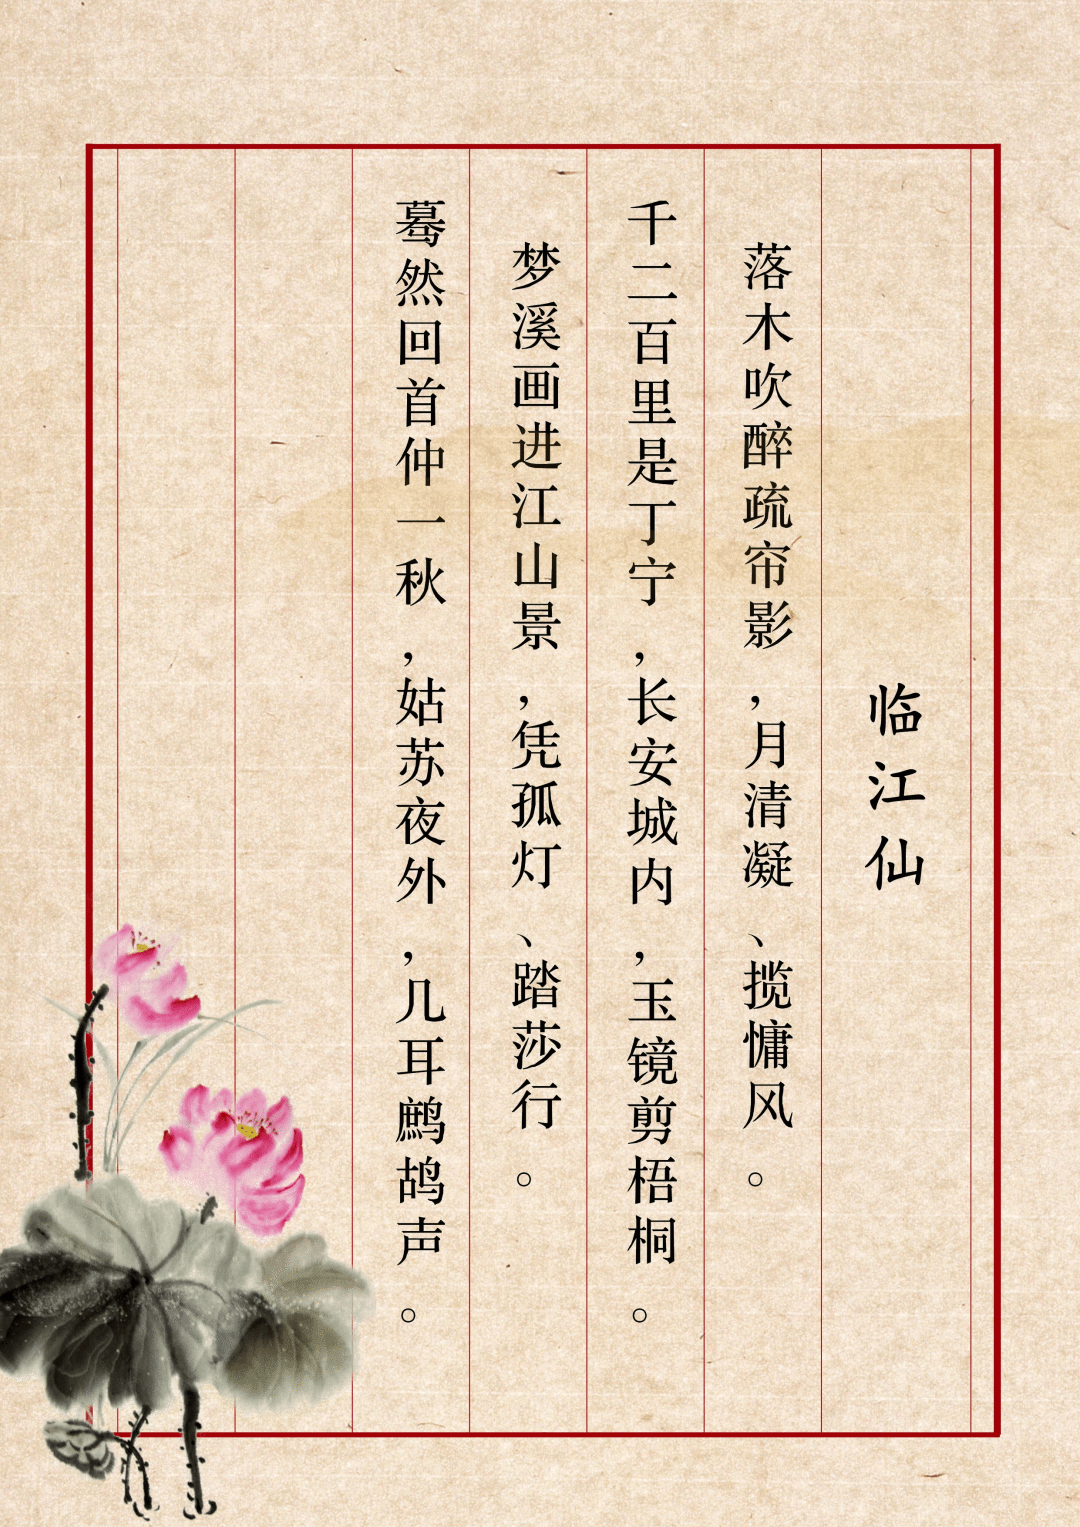 临江仙
落木吹醉疏帘影,月清凝、揽慵风。
千二百里是丁宁,长安城内,玉镜剪梧桐。
梦溪画进江山景,凭孤灯、踏莎行。
蓦然回首仲一秋,姑苏夜外,几耳鹧鸪声。